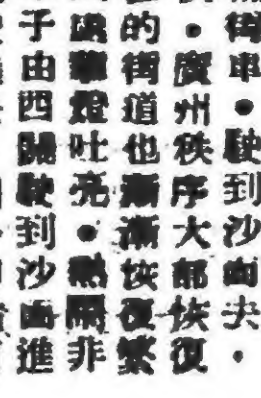 街車。駛到沙面去。
。廣州秩序大部恢復
的街道也漸漸恢復繁
華燈吐亮。熱鬧非
子由西關駛到沙面進